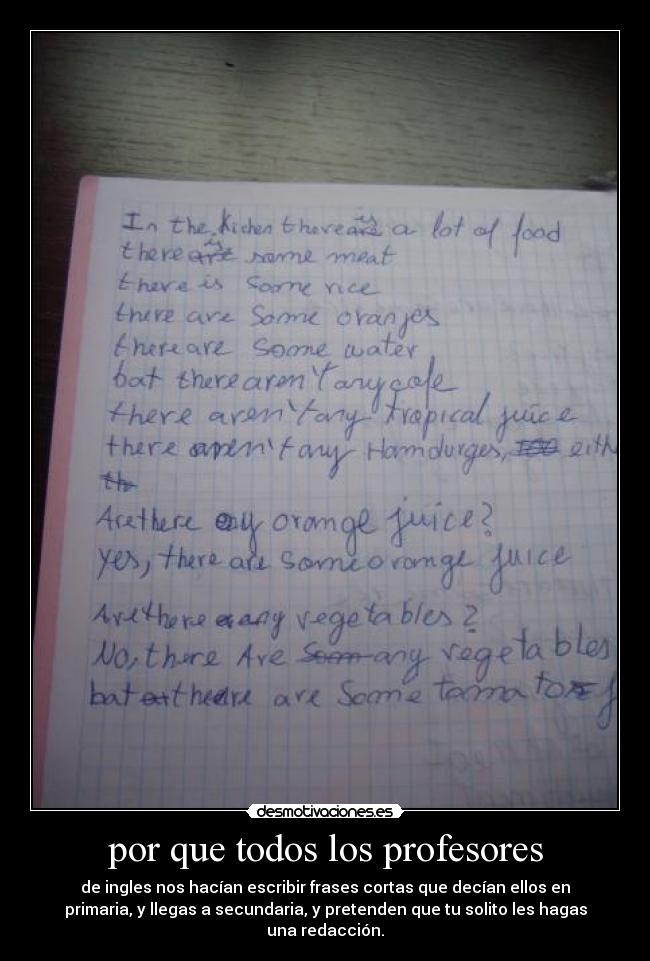 In the Kichen there are is a lot of food
there are is some meat
there is some rice
there are Some oranjes
there are Some water
bat there aren't any cofe
there aren't any tropical juice
there aren't any Hamdurges, eith
th
Are there any orange juice?
yes, there are some orange juice
Are there any vegetables?
No, there Are Som any vegetables
bat there are Some tomatoes
desmotivaciones.es
por que todos los profesores
de ingles nos hacían escribir frases cortas que decían ellos en
primaria, y llegas a secundaria, y pretenden que tu solito les hagas
una redacción.